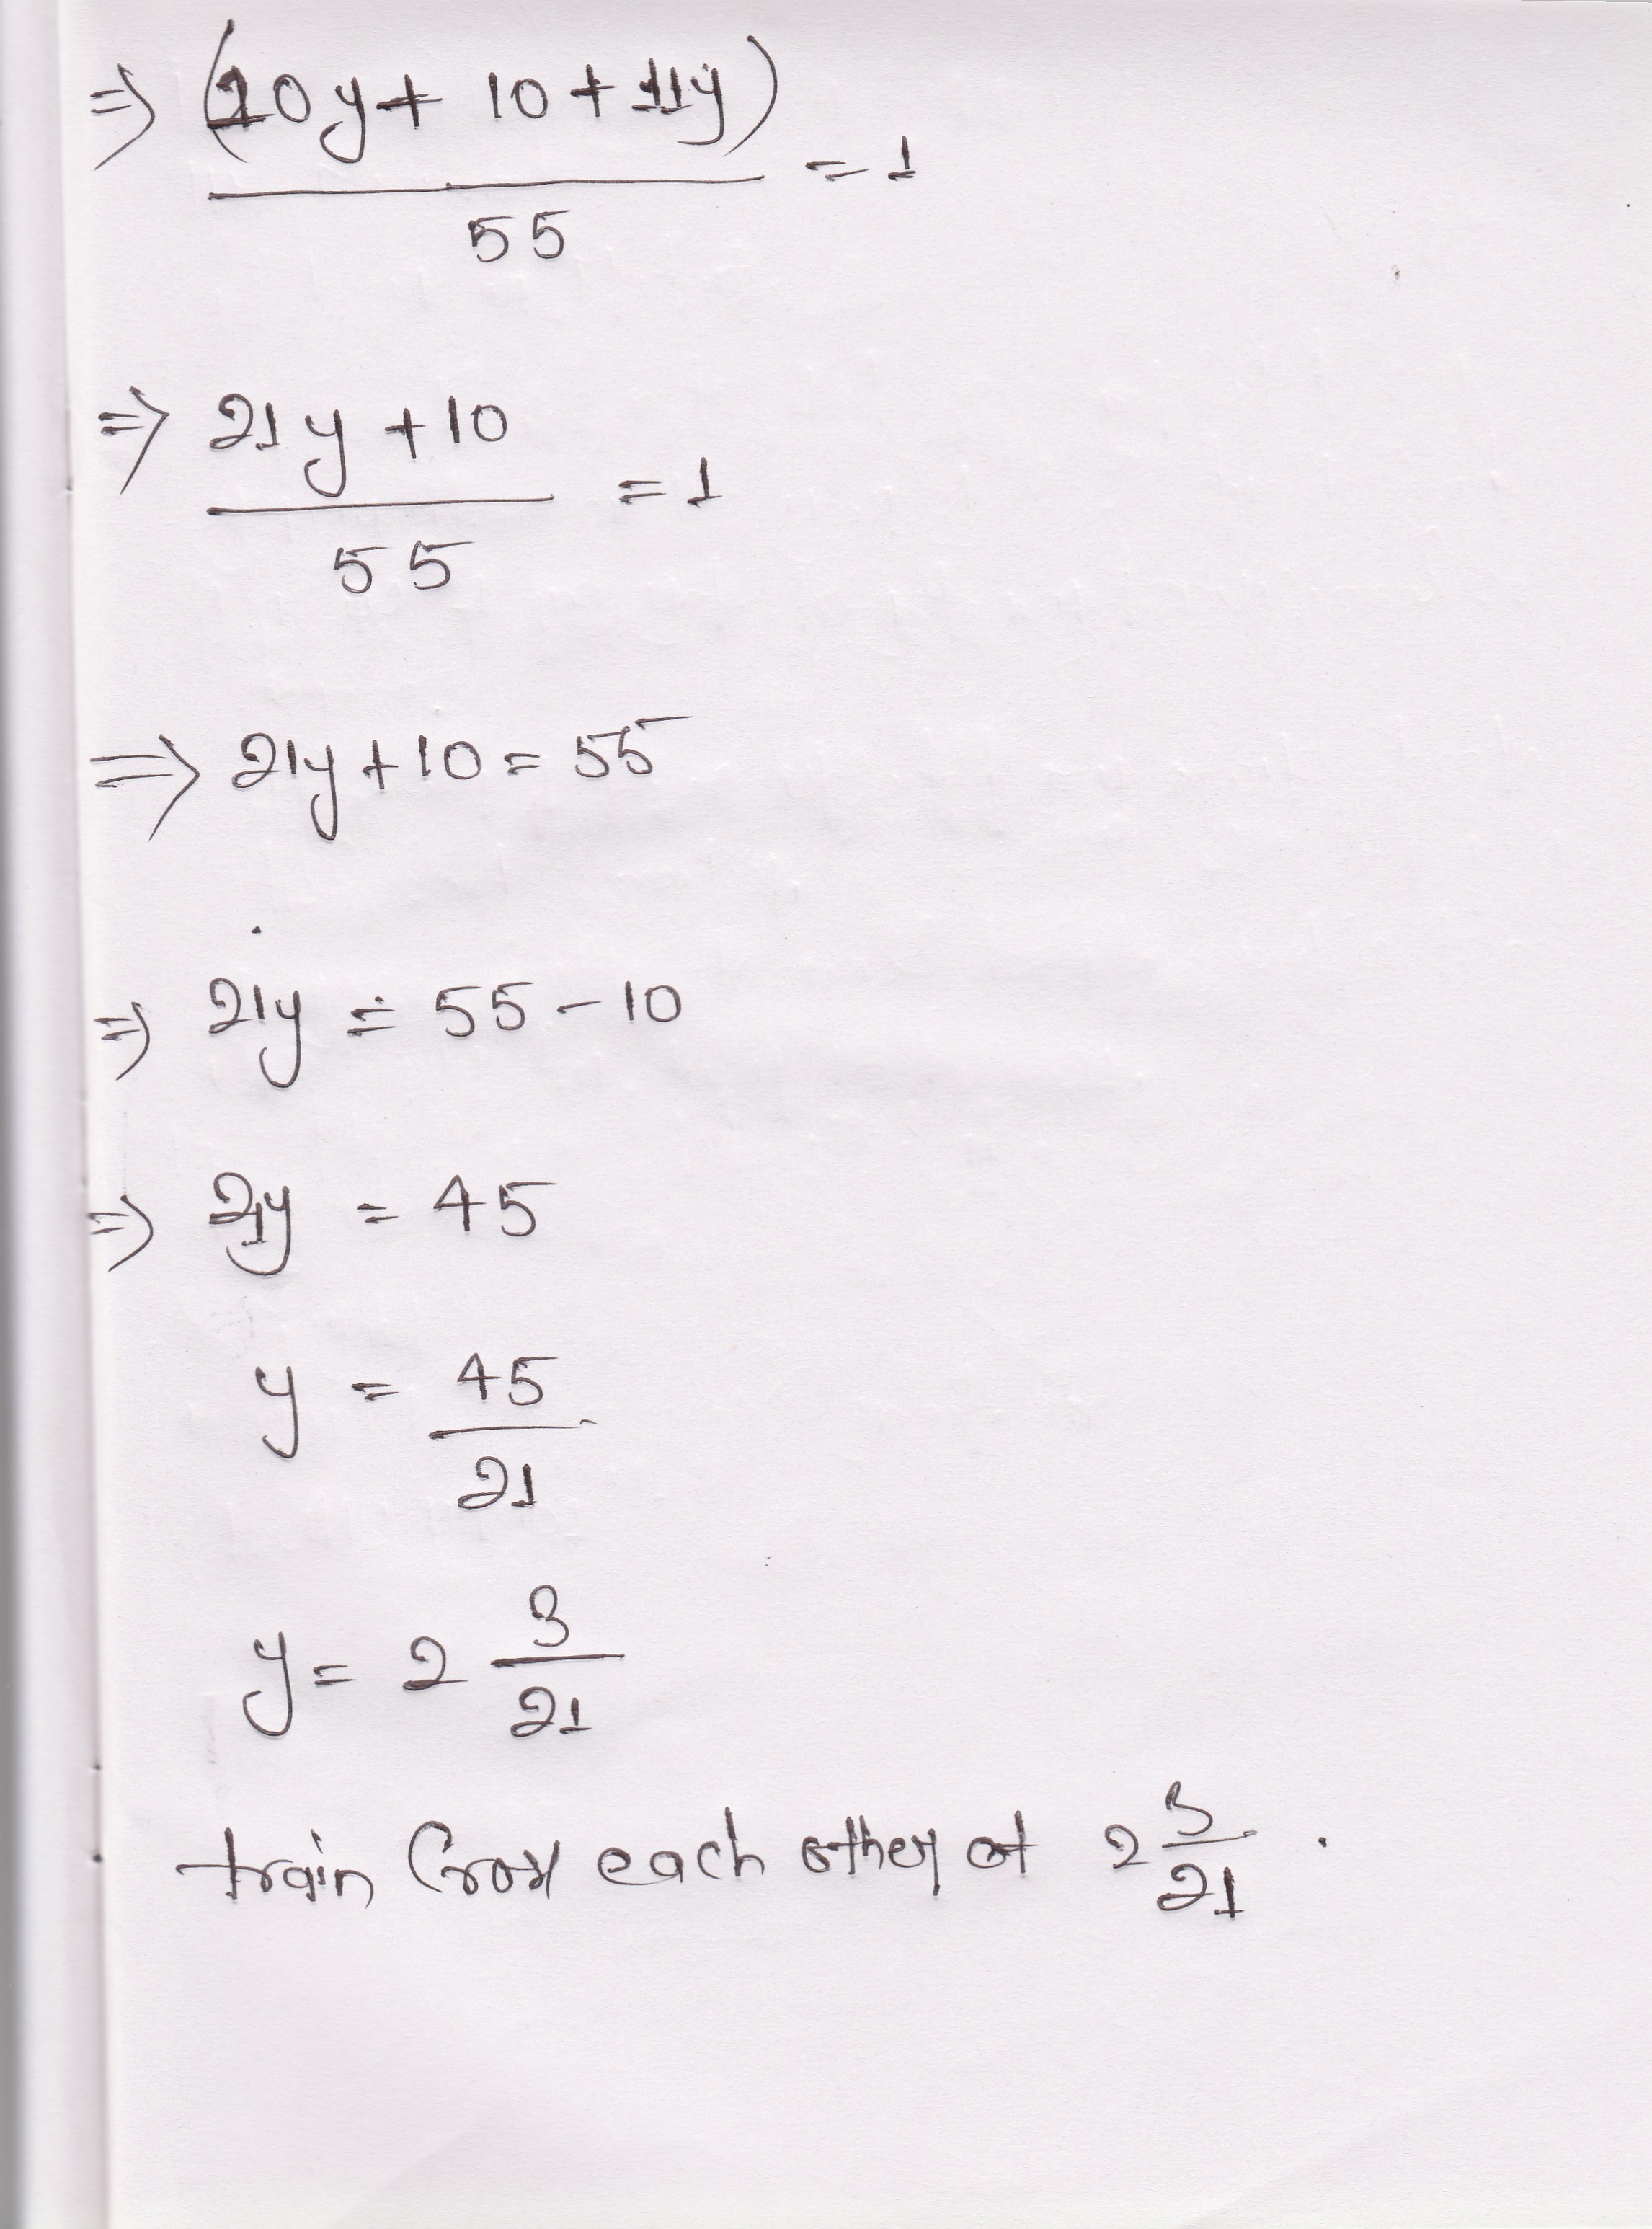 ⇒ (10y + 10 + 11y)
55
= 1
⇒ 21y + 10
55
= 1
⇒ 21y + 10 = 55
⇒ 21y = 55 - 10
⇒ 21y = 45
y = 45/21
y = 2 3/21
train Cross each other at 2 3/21 .